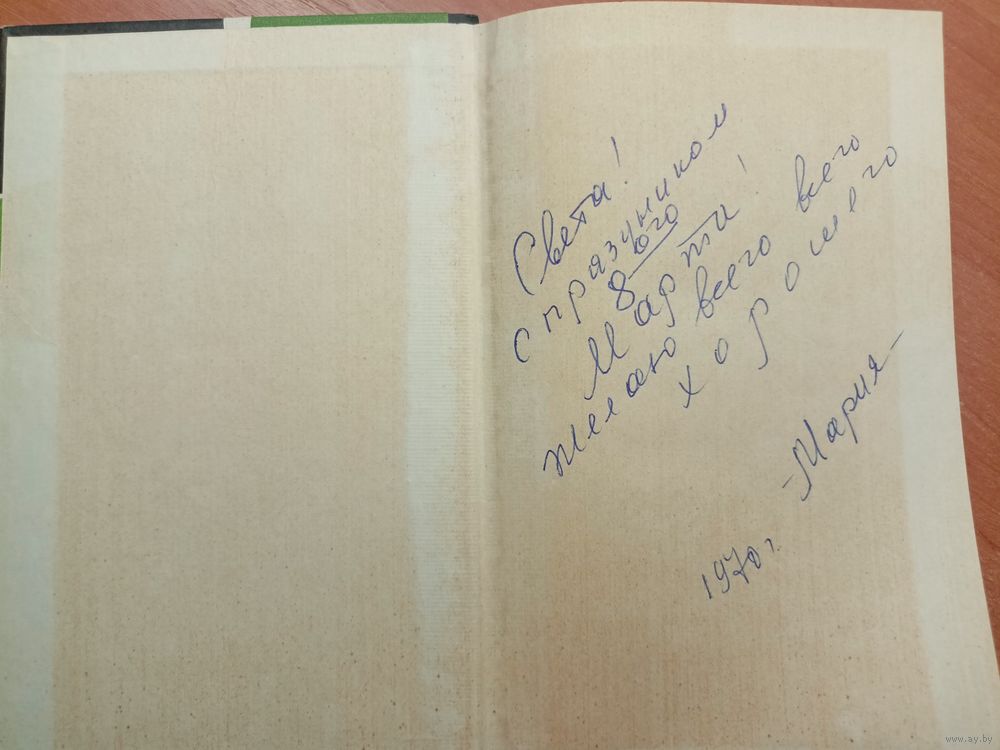 Света!
с празуником
8ого
Марта!
Желаю всего всего
хорошего
-Мария-
1970 г.
www.ay.by